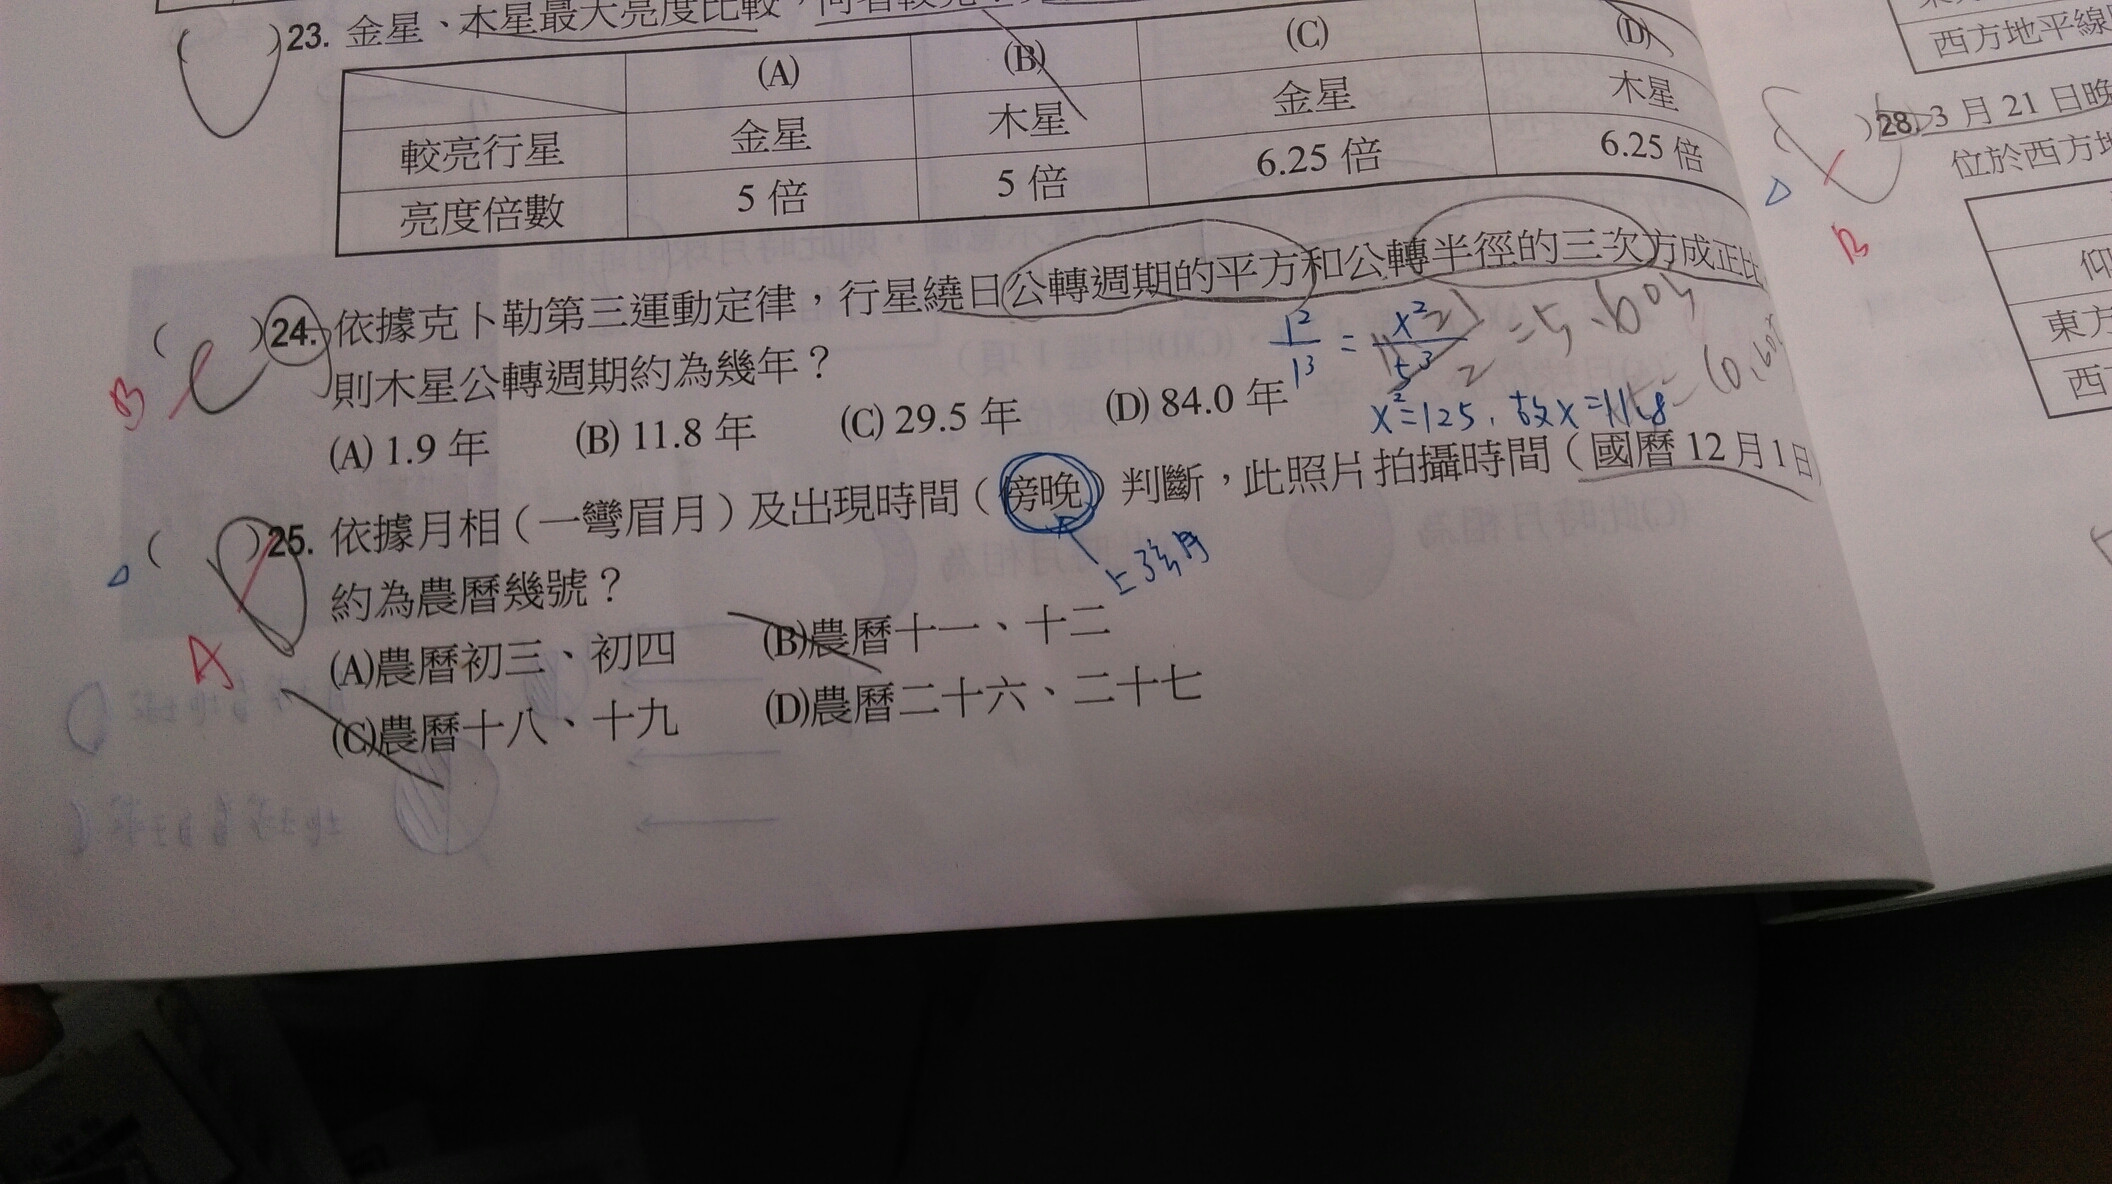 23. 金星、木星最大亮度比較，何者較亮
(A) (B) (C) (D)
較亮行星 金星 木星 金星 木星
亮度倍數 5 倍 5 倍 6.25 倍 6.25 倍
( )24. 依據克卜勒第三運動定律，行星繞日公轉週期的平方和公轉半徑的三次方成正比
則木星公轉週期約為幾年？
1²/1³ = x²/5³
B
(A) 1.9 年 (B) 11.8 年 (C) 29.5 年 (D) 84.0 年
x²=125，故x=11.8
( )25. 依據月相（一彎眉月）及出現時間（傍晚）判斷，此照片拍攝時間（國曆 12 月 1 日
約為農曆幾號？
A
(A)農曆初三、初四 (B)農曆十一、十二
(C)農曆十八、十九 (D)農曆二十六、二十七
西方地平線
)28. 3 月 21 日晚
位於西方地
B
仰
東方
西